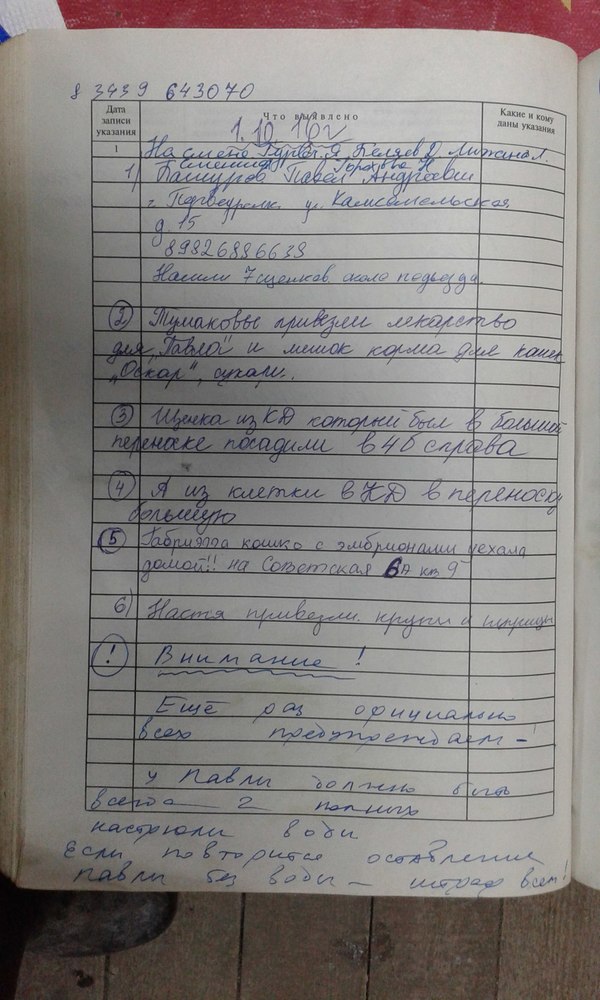 8 3439 643070
Дата записи указания
Что выявлено
Какие и кому даны указания
1.10.16г
1
На смене Беляев Д
1) Башуров Павел Андреевич
г. Первоуральск ул. Комсомольская
д. 15
89826886639
Нашли 7 щенков около подъезда.
2 Тумаковы привезли лекарство
для "Павла" и мешок корма для кошек
"Оскар", сухари.
3 Щенка из КД который был в большой
переноске посадили в 4б справа
4 А из клетки в КД в переноску
большую
5 Габриэлла кошка с эмбрионами уехала
домой!! на Советская 6А кв 9
6) Настя привезли крупы и шприцы
! Внимание!
Ещё раз официально
всех предупреждаем -
у Павли должно быть
всегда 2 полных
кастрюли воды
Если повторится оставление
Павли без воды - штраф всем!